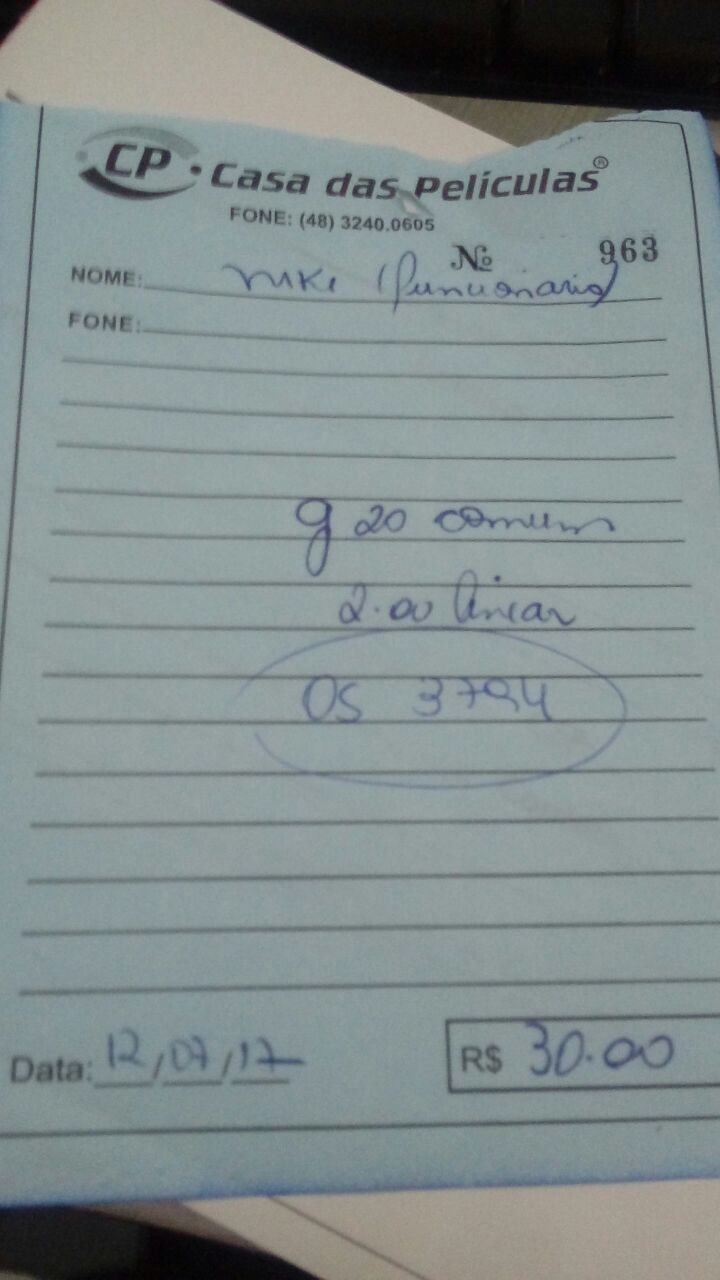 CP · Casa das Películas®
FONE: (48) 3240.0605
Nº 963
NOME: (funcionario)
FONE:
g 20 comum
2.00 linear
OS 3794
Data: 12/07/17
R$ 30.00